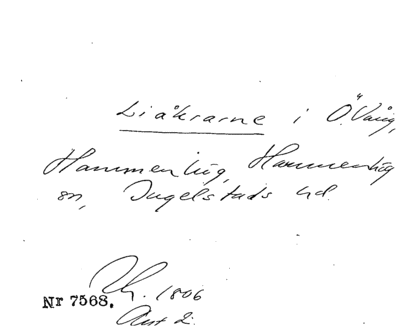 Liåkrarne i Ö. Vång,
Hammenhög, Hammenhög
sn, Ingelstads hd.
Nr 7568. Ch. 1806
Akt 2.